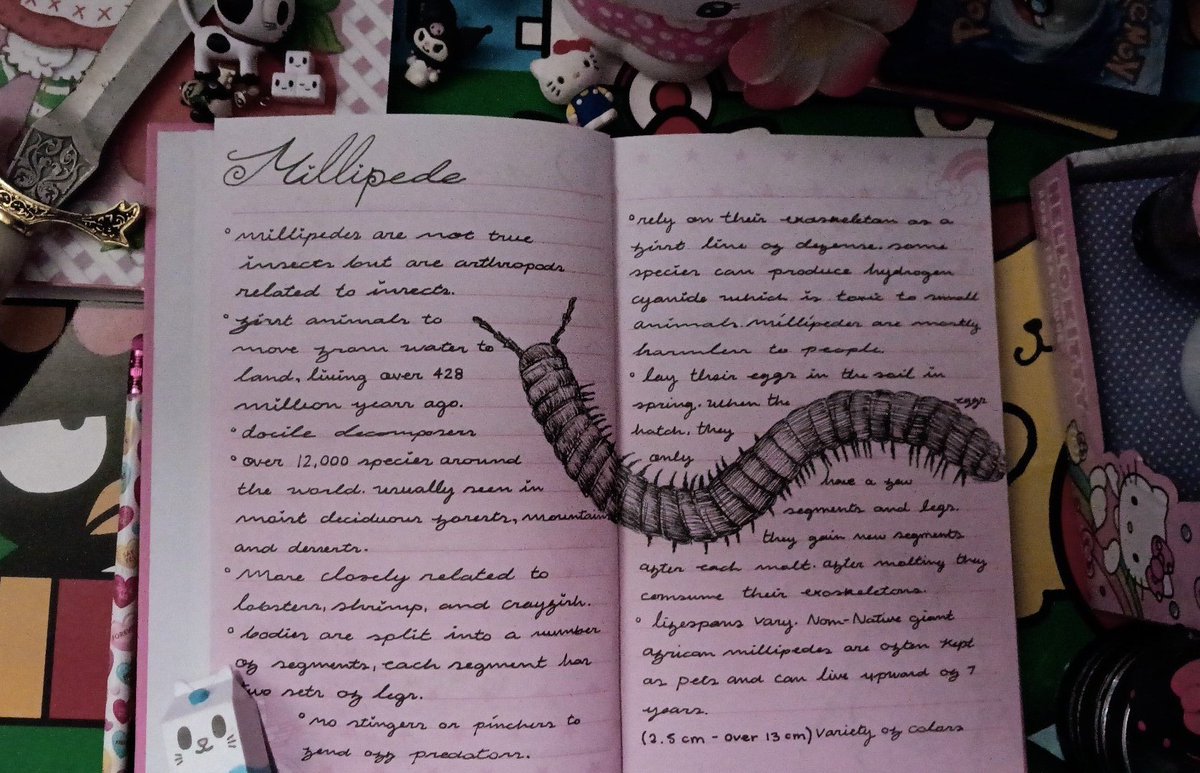 Millipede
° millipedes are not true
insects but are arthropods
related to insects.
° first animals to
move from water to
land, living over 428
million years ago.
° docile decomposers
° over 12,000 species around
the world. usually seen in
moist deciduous forests, mountains
and desserts.
° More closely related to
lobsters, shrimp, and crayfish.
° bodies are split into a number
of segments, each segment has
two sets of legs.
° no stingers or pinchers to
fend off predators.
° rely on their exoskeleton as a
first line of defense. some
species can produce hydrogen
cyanide which is toxic to small
animals. millipedes are mostly
harmless to people.
° lay their eggs in the soil in
spring. When the eggs
hatch, they
only
have a few
segments and legs.
they gain new segments
after each molt. after molting they
comsume their exoskeletons.
° lifespans vary. Non-Native giant
african millipedes are often kept
as pets and can live upward of 7
years.
(2.5 cm - over 13 cm) Variety of colors
HELLO KITTY